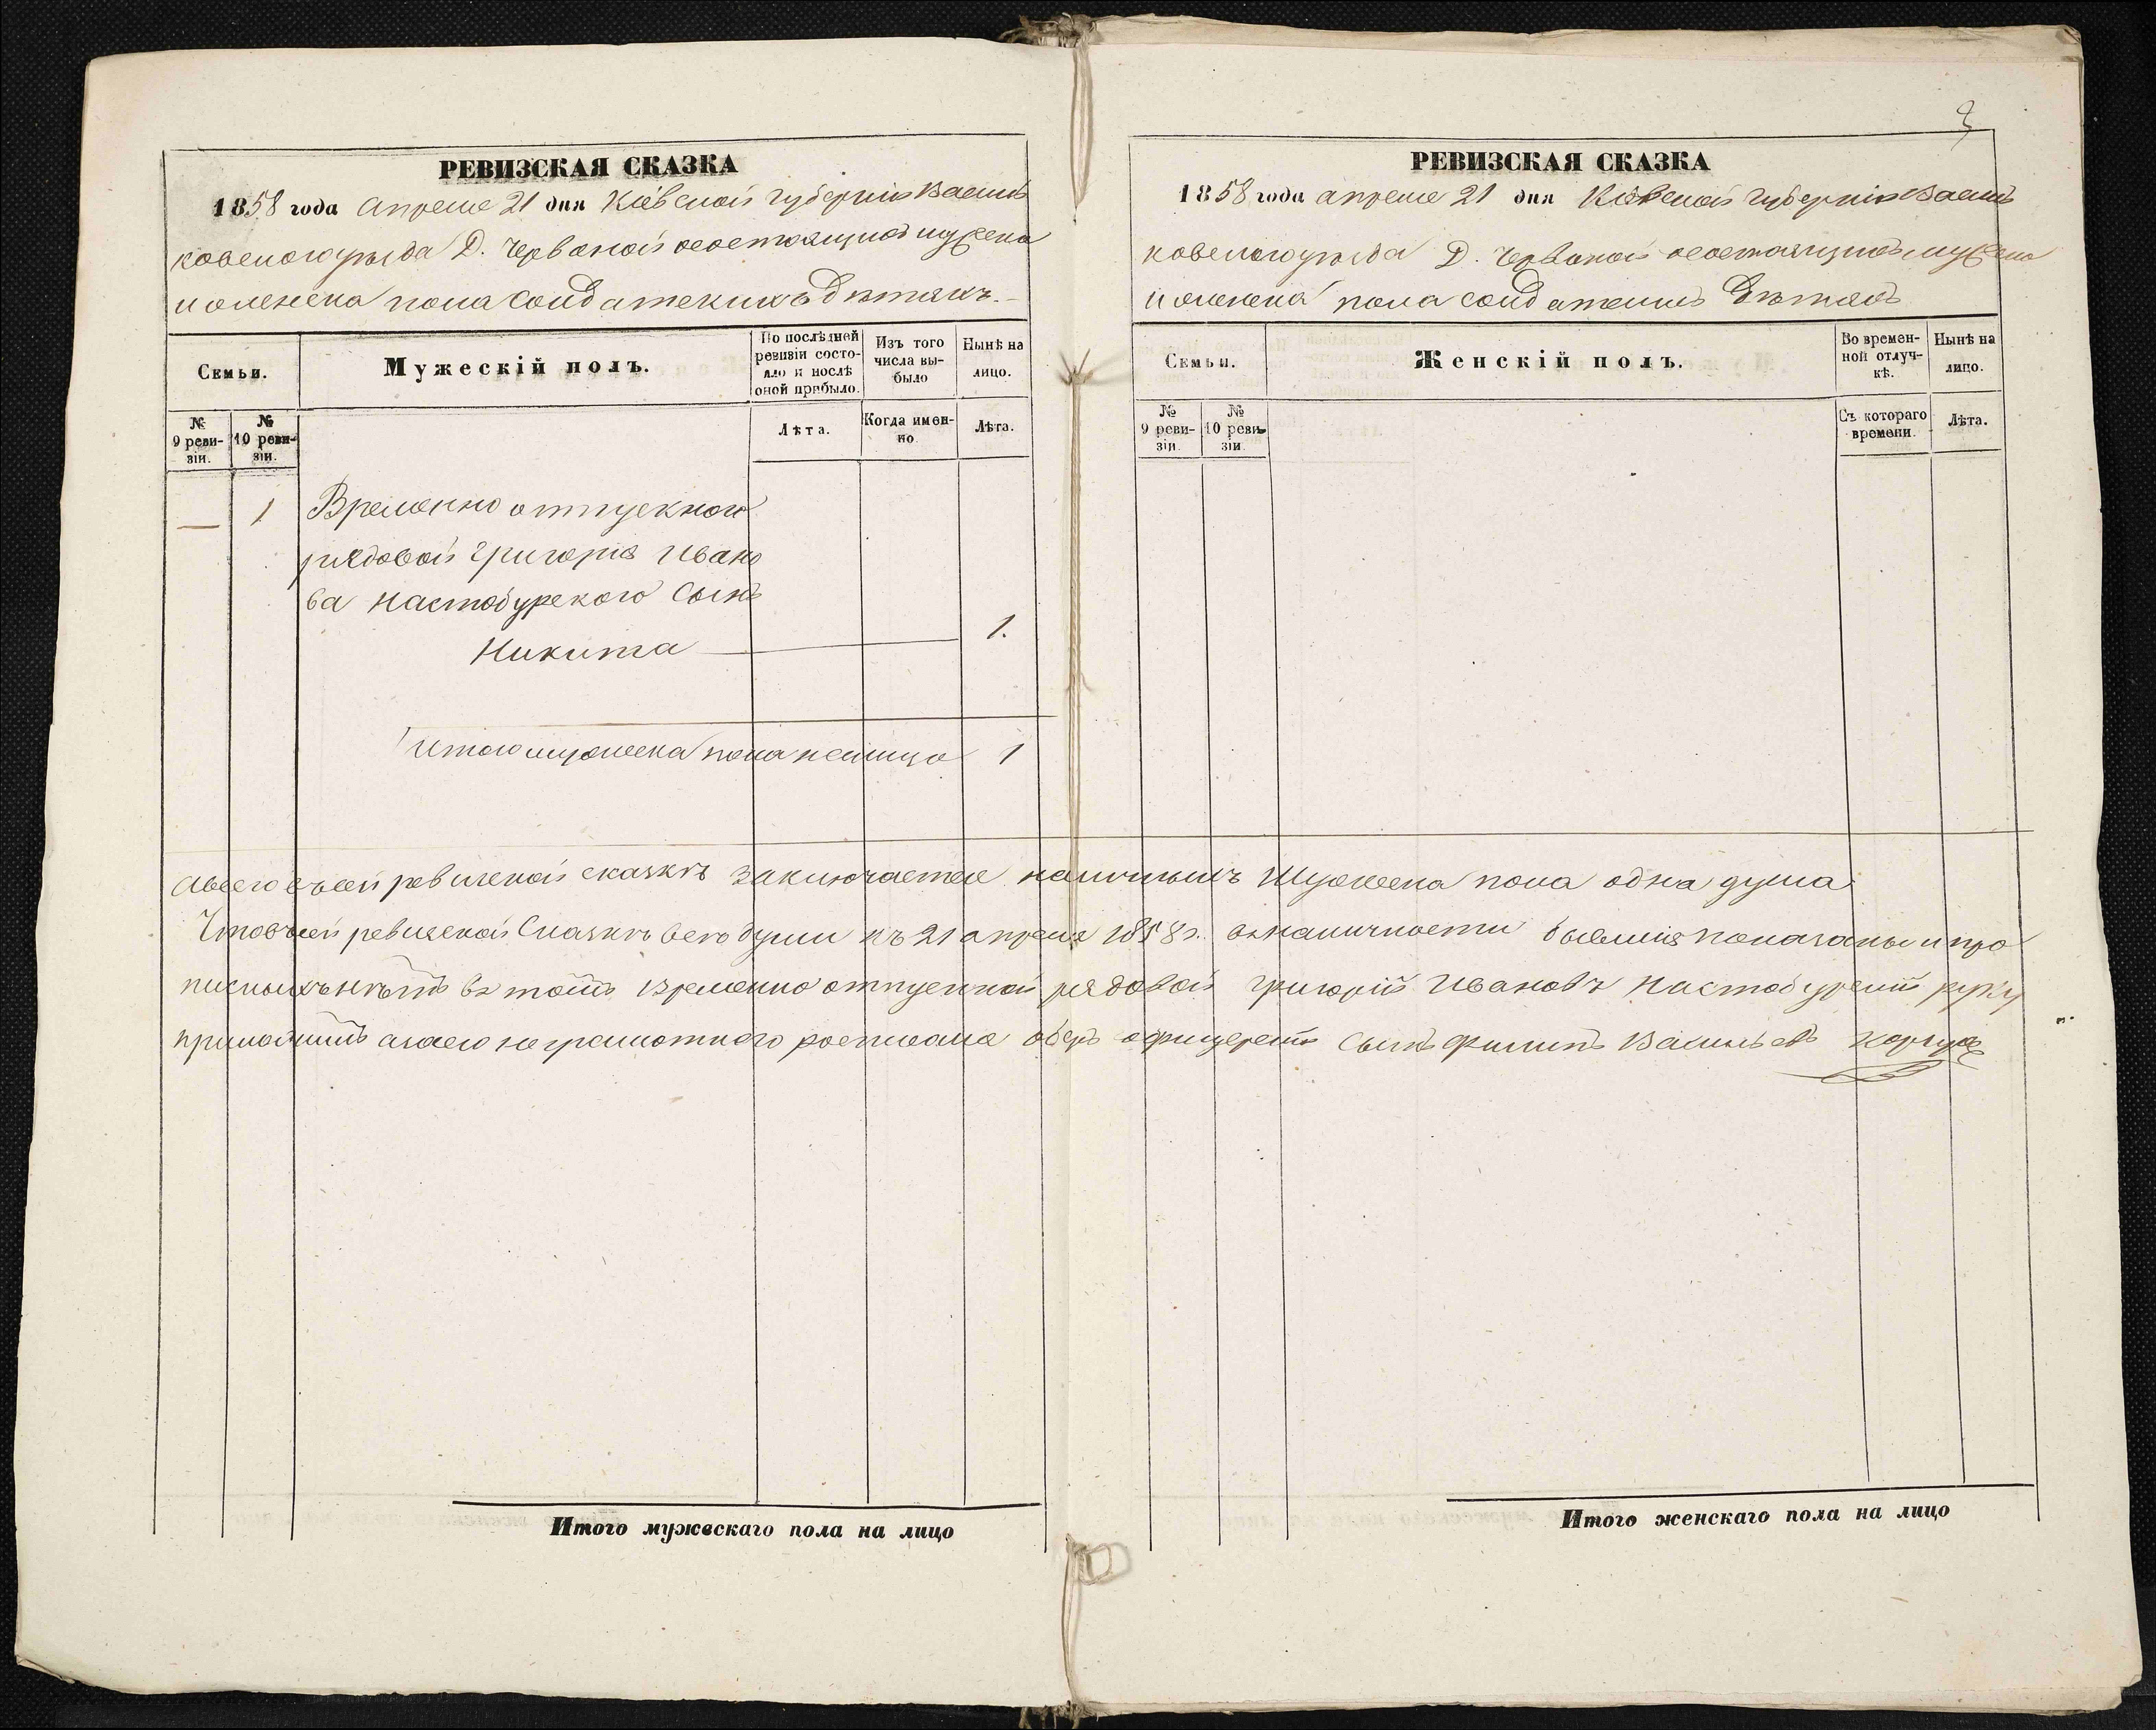 РЕВИЗСКАЯ СКАЗКА
1858 года апреля 21 дня Кіевской губерніи Василь
ковского уѣзда Д. Червоной о состоящихъ мужеска
и женска пола солдатскихъ дѣтяхъ.
Семьи.
Мужескій полъ.
По послѣдней ревизіи состояло и послѣ оной прибыло.
Изъ того числа выбыло
Нынѣ на лицо.
№ 9 ревизіи.
№ 10 ревизіи.
Лѣта.
Когда именно.
Лѣта.
— 1 Временно отпускного
рядовой Григорія Ивано
ва Настобурского Сынъ
Никита — 1.
Итого мужеска пола налицо 1
Итого мужескаго пола на лицо
3
РЕВИЗСКАЯ СКАЗКА
1858 года апреля 21 дня Кіевской губерніи Василь
ковского уѣзда Д. Червоной о состоящихъ мужеска
и женска пола солдатскихъ дѣтяхъ
Семьи.
Женскій полъ.
Во временной отлучкѣ.
Нынѣ на лицо.
№ 9 ревизіи.
№ 10 ревизіи.
Съ котораго времени.
Лѣта.
А всего въ сей ревизской сказкѣ заключается наличныхъ Мужеска пола одна душа
Что въ сей ревизской Сказкѣ всѣ души къ 21 апреля 1858 г. в наличности бывшія показаны и про
писныхъ нѣтъ в томъ временно отпускной рядовой Григорій Ивановъ Настобурскій руку
приложилъ а за его неграмотного росписался оберъ офицерскій сынъ Филипъ Васильевъ
Итого женскаго пола на лицо